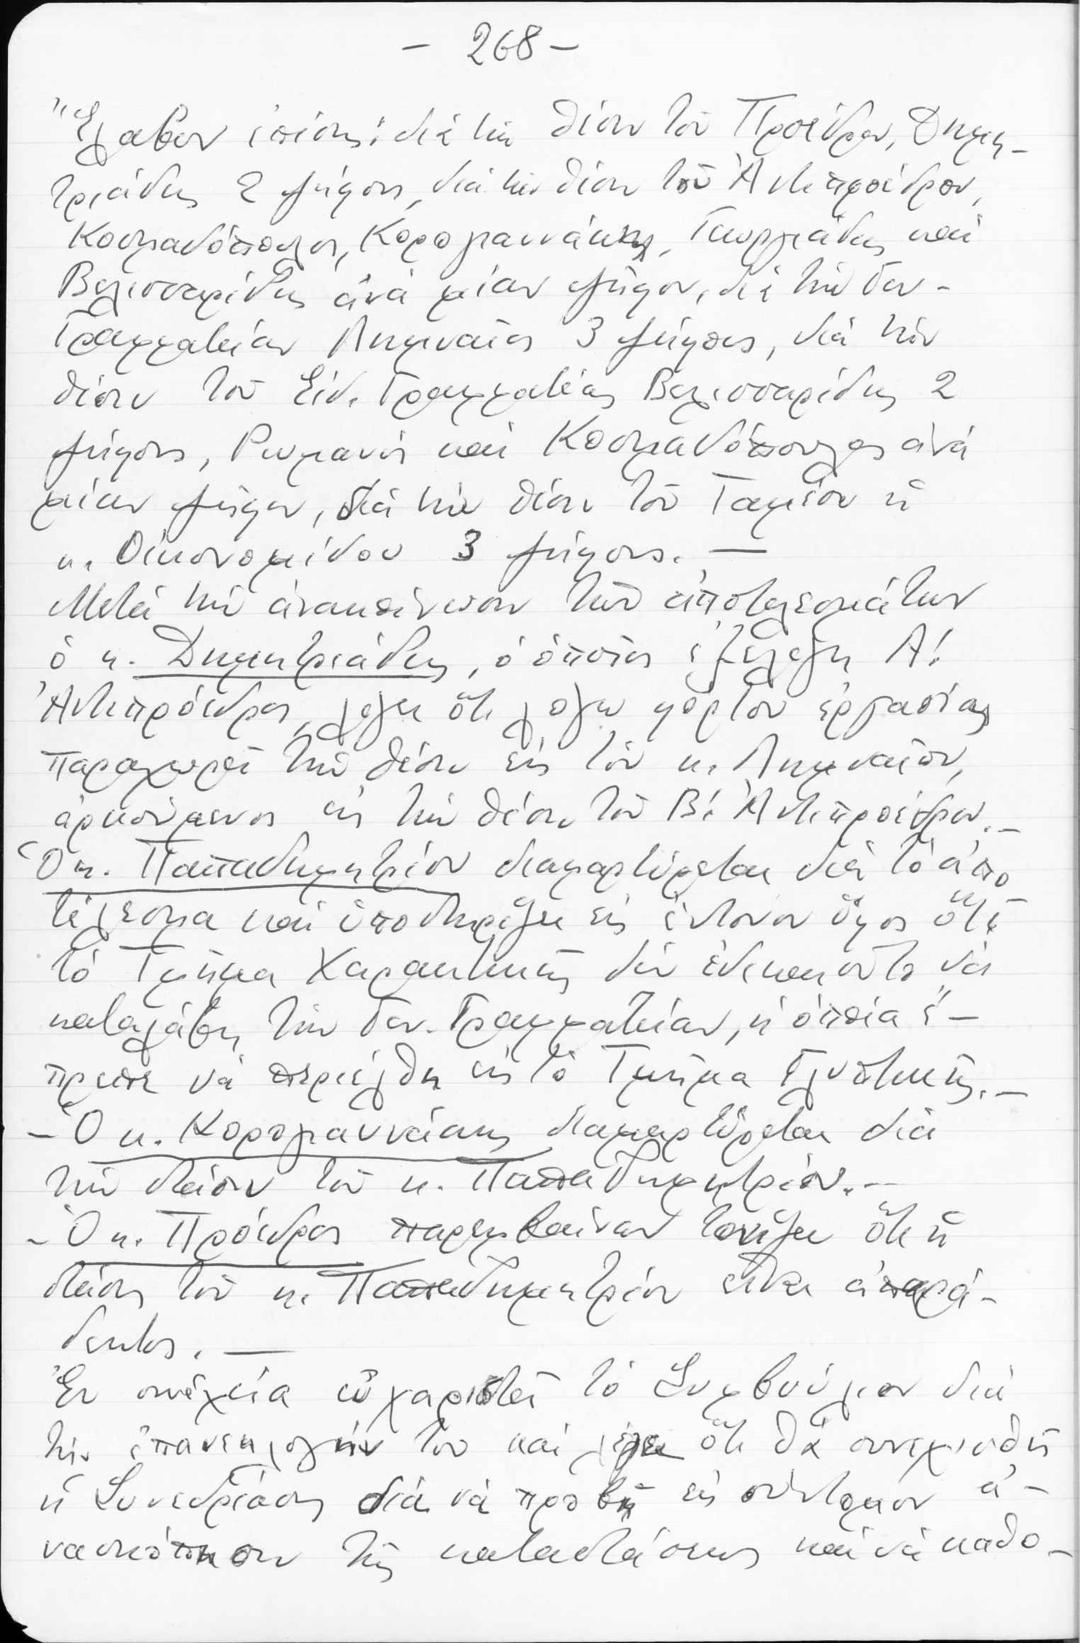 - 268 -
Ἔλαβον ἐπίσης: διά τήν θέσιν τοῦ Προέδρου, Δημη-
τριάδης 2 ψήφους, διά τήν θέσιν τοῦ Ἀντιπροέδρου,
Κοσμαδόπουλος, Κορογιαννάκης, Γεωργιάδης καί
Βελισσαρίδης ἀνά μίαν ψῆφον, διά τήν Γεν.
Γραμματείαν Λημναῖος 3 ψήφους, διά τήν
θέσιν τοῦ Εἰδ. Γραμματέως Βελισσαρίδης 2
ψήφους, Ρωμανός καί Κοσμαδόπουλος ἀνά
μίαν ψῆφον, διά τήν θέσιν τοῦ Ταμίου ἡ
κ. Οἰκονομίδου 3 ψήφους. —
Μετά τήν ἀνακοίνωσιν τῶν ἀποτελεσμάτων
ὁ κ. Δημητριάδης, ὁ ὁποῖος ἐξελέγη Α!
Ἀντιπρόεδρος, λέγει ὅτι λόγω φόρτου ἐργασίας
παραχωρεῖ τήν θέσιν εἰς τόν κ. Λημναῖον,
ἀρκούμενος εἰς τήν θέσιν τοῦ Β! Ἀντιπροέδρου. —
Ὁ κ. Παπαδημητρίου διαμαρτύρεται διά τό ἀπο
τέλεσμα καί ὑποστηρίζει εἰς ἔντονον ὕφος ὅτι
τό Τμῆμα Χαρακτικῆς δέν ἐδικαιοῦτο νά
καταλάβη τήν Γεν. Γραμματείαν, ἡ ὁποία ἔ-
πρεπε νά περιέλθη εἰς τό Τμῆμα Γλυπτικῆς. —
- Ὁ κ. Κορογιαννάκης διαμαρτύρεται διά
τήν στάσιν τοῦ κ. Παπαδημητρίου. —
- Ὁ κ. Πρόεδρος παρεμβαίνων τονίζει ὅτι ἡ
στάσις τοῦ κ. Παπαδημητρίου εἶναι ἀπαρά-
δεκτος. —
Ἐν συνεχεία εὐχαριστεῖ τό Συμβούλιον διά
τήν ἐπανεκλογήν του καί λέγει ὅτι θά συνεχισθῆ
ἡ Συνεδρίασις διά νά προβῆ εἰς σύντομον ἀ-
νασκόπησιν τῆς καταστάσεως καί νά καθο-